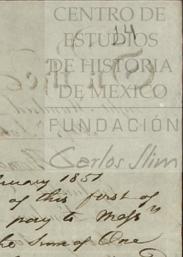 14
CENTRO DE
ESTUDIOS
DE HISTORIA
DE MEXICO
FUNDACIÓN
Carlos Slim
nuary 1851
of this first of
pay to Messrs
the Sum of One